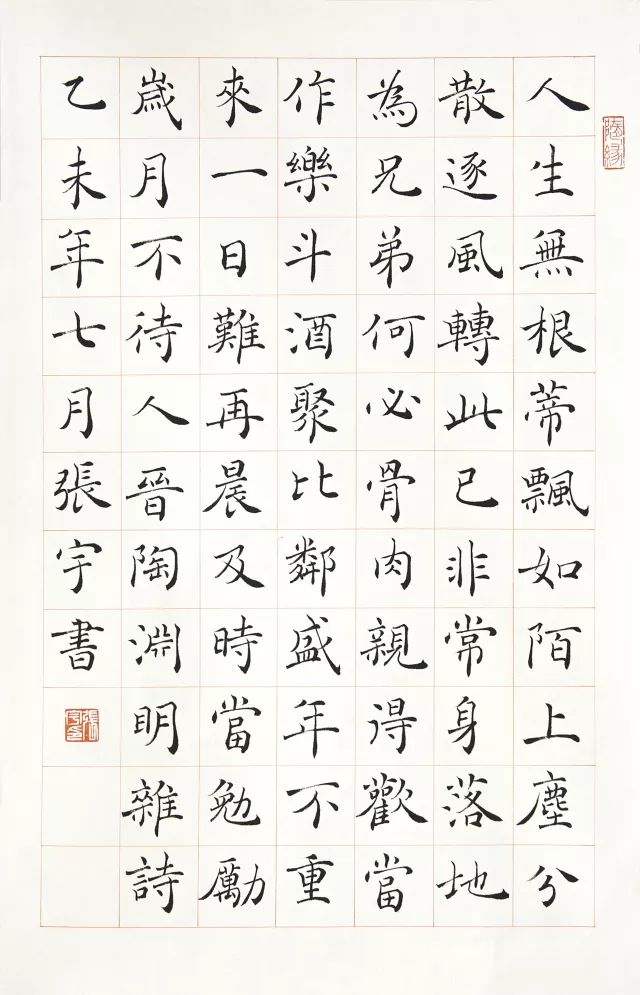 人生無根蒂飄如陌上塵分
散逐風轉此已非常身落地
為兄弟何必骨肉親得歡當
作樂斗酒聚比鄰盛年不重
來一日難再晨及時當勉勵
歲月不待人晉陶淵明雜詩
乙未年七月張宇書
陶緣
張宇印